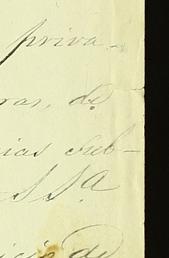 priva-
ras, de
ias Sub-
S Sª
de